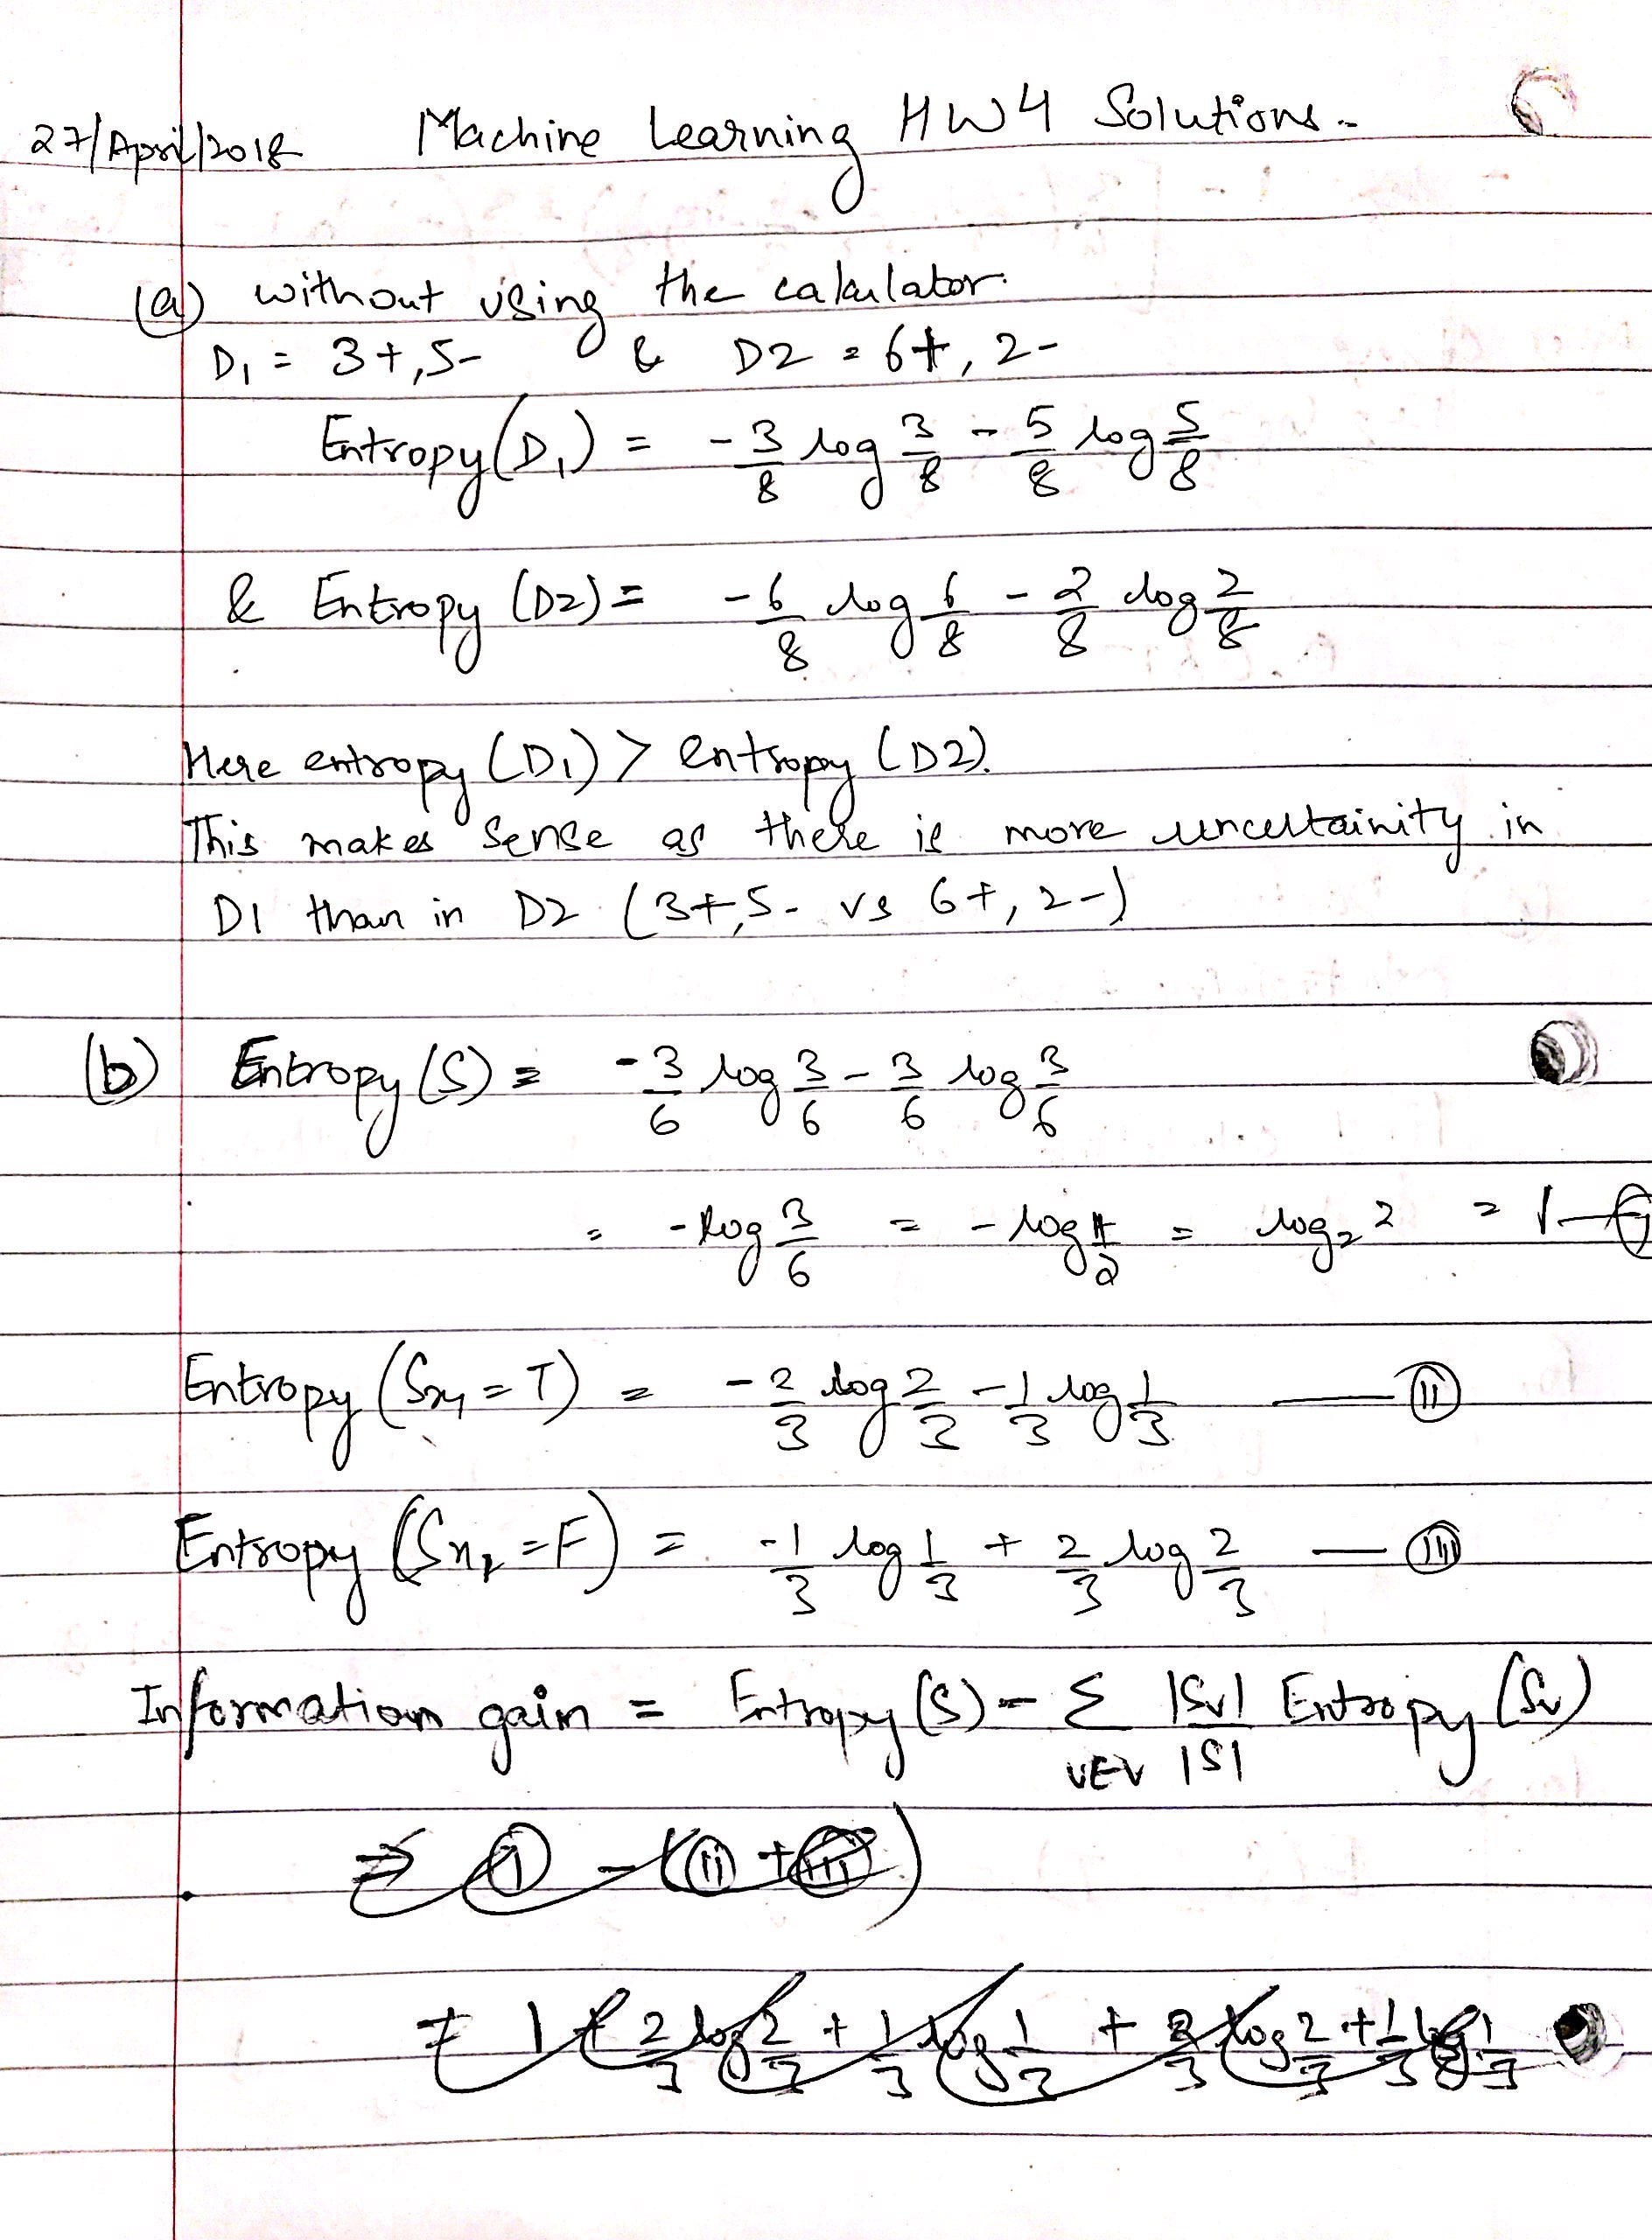 27/April/2018 Machine Learning HW4 Solutions.
(a) without using the calculator.
D1 = 3+,5- & D2 = 6+, 2-
Entropy(D1) = -3/8 log 3/8 - 5/8 log 5/8
& Entropy (D2) = -6/8 log 6/8 - 2/8 log 2/8
Here entropy (D1) > entropy (D2).
This makes sense as there is more uncertainity in
D1 than in D2 (3+,5- vs 6+, 2-)
(b) Entropy(S) = -3/6 log 3/6 - 3/6 log 3/6
= -log 3/6 = -log 1/2 = log₂ 2 = 1 —
Entropy (Sx1 = T) = -2/3 log 2/3 - 1/3 log 1/3 — (ii)
Entropy (Sx1 = F) = -1/3 log 1/3 + 2/3 log 2/3 — (iii)
Information gain = Entropy(S) - Σ v∈V |Sv|/|S| Entropy (Sv)
⇒ (i) - ((ii) + (iii))
= 1 + 2/3 log 2/3 + 1/3 log 1/3 + 2/3 log 2/3 + 1/3 log 1/3